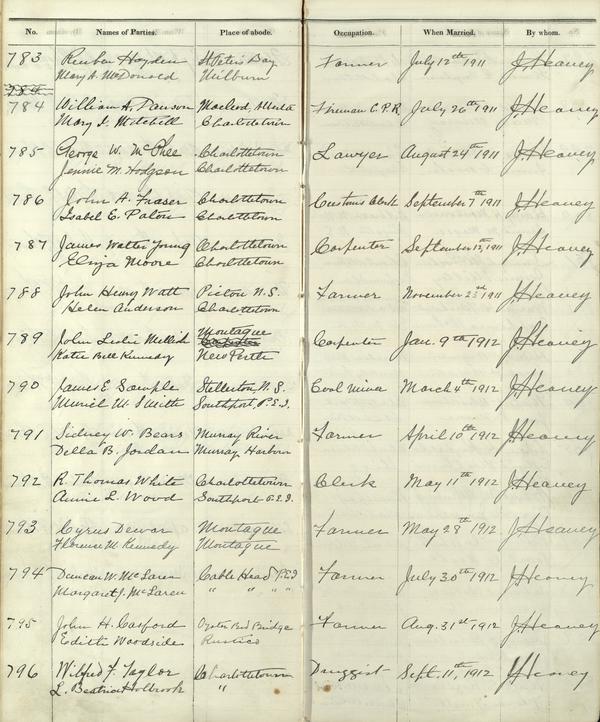 No. Names of Parties. Place of abode. Occupation. When Married. By whom.
783 Reuben Hayden St Peters Bay Farmer July 12th 1911 J. Heaney
Mary A McDonald Milburn
784 William A. Trewson Macleod Alberta Fireman C.P.R July 26th 1911 J. Heaney
Mary I. Mitchell Charlottetown
785 George W. McPhee Charlottetown Lawyer August 24th 1911 J. Heaney
Jennie M. Hodgson Charlottetown
786 John A. Fraser Charlottetown Customs Clerk September 7th 1911 J. Heaney
Isabel E. Paton Charlottetown
787 James Walter Young Charlottetown Carpenter September 13th, 1911 J. Heaney
Eliza Moore Charlottetown
788 John Henry Watt Pictou N.S. Farmer November 23rd 1911 J. Heaney
Helen Anderson Charlottetown
789 John Leslie Mellish Montague Carpenter Jan. 9th 1912 J. Heaney
Katie Bell Kennedy New Perth
790 James E. Sample Stellerton, N.S. Coal Miner March 4th 1912 J. Heaney
Muriel M. Smith Southport, P.E.I.
791 Sidney W. Bears Murray River Farmer April 10th 1912 J. Heaney
Della B. Jordan Murray Harbour
792 R. Thomas White Charlottetown Clerk May 11th 1912 J. Heaney
Annie L. Wood Southport P.E.I.
793 Cyrus Dewar Montague Farmer May 28th 1912 J. Heaney
Florence M. Kennedy Montague
794 Duncan W. McLaren Cable Head P.E.I Farmer July 30th 1912 J. Heaney
Margaret J. McLaren " " " "
795 John H. Casford Oyster Bed Bridge Farmer Aug. 31st 1912 J. Heaney
Edith Woodside Rustico
796 Wilfred F. Taylor Charlottetown Druggist Sept. 11th, 1912 J. Heaney
L. Beatrice Holbrook "